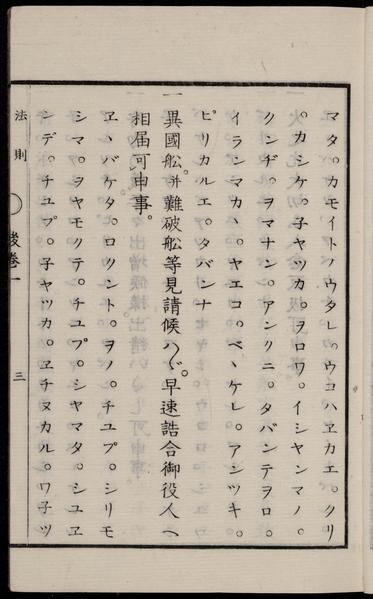 マタ。カモイトノウタレ。ウコハヱカエ。クリ
。カシケ。子ヤツカ。ヲロワ。イシヤンマノ。
クンヂ。ヲマナン。アンクニ。タバンテヲロ。
イランマカヽ。ヤエコ。ベヽケレ。アンツキ。
ピリカルエ。タバンナ
一
異國舩。并難破舩等見請候ハヾ。早速詰合御役人ヘ
相届可申事。
ヱヽバケタ。ロリント。ヲノ。チユプ。シリモ
シマ。ヲヤモクテ。チユプ。シヤマタ。シユヱ
ンデ。チユプ。子ヤツカ。ヱチヌカル。ワ子ツ
法則
後巻一
三